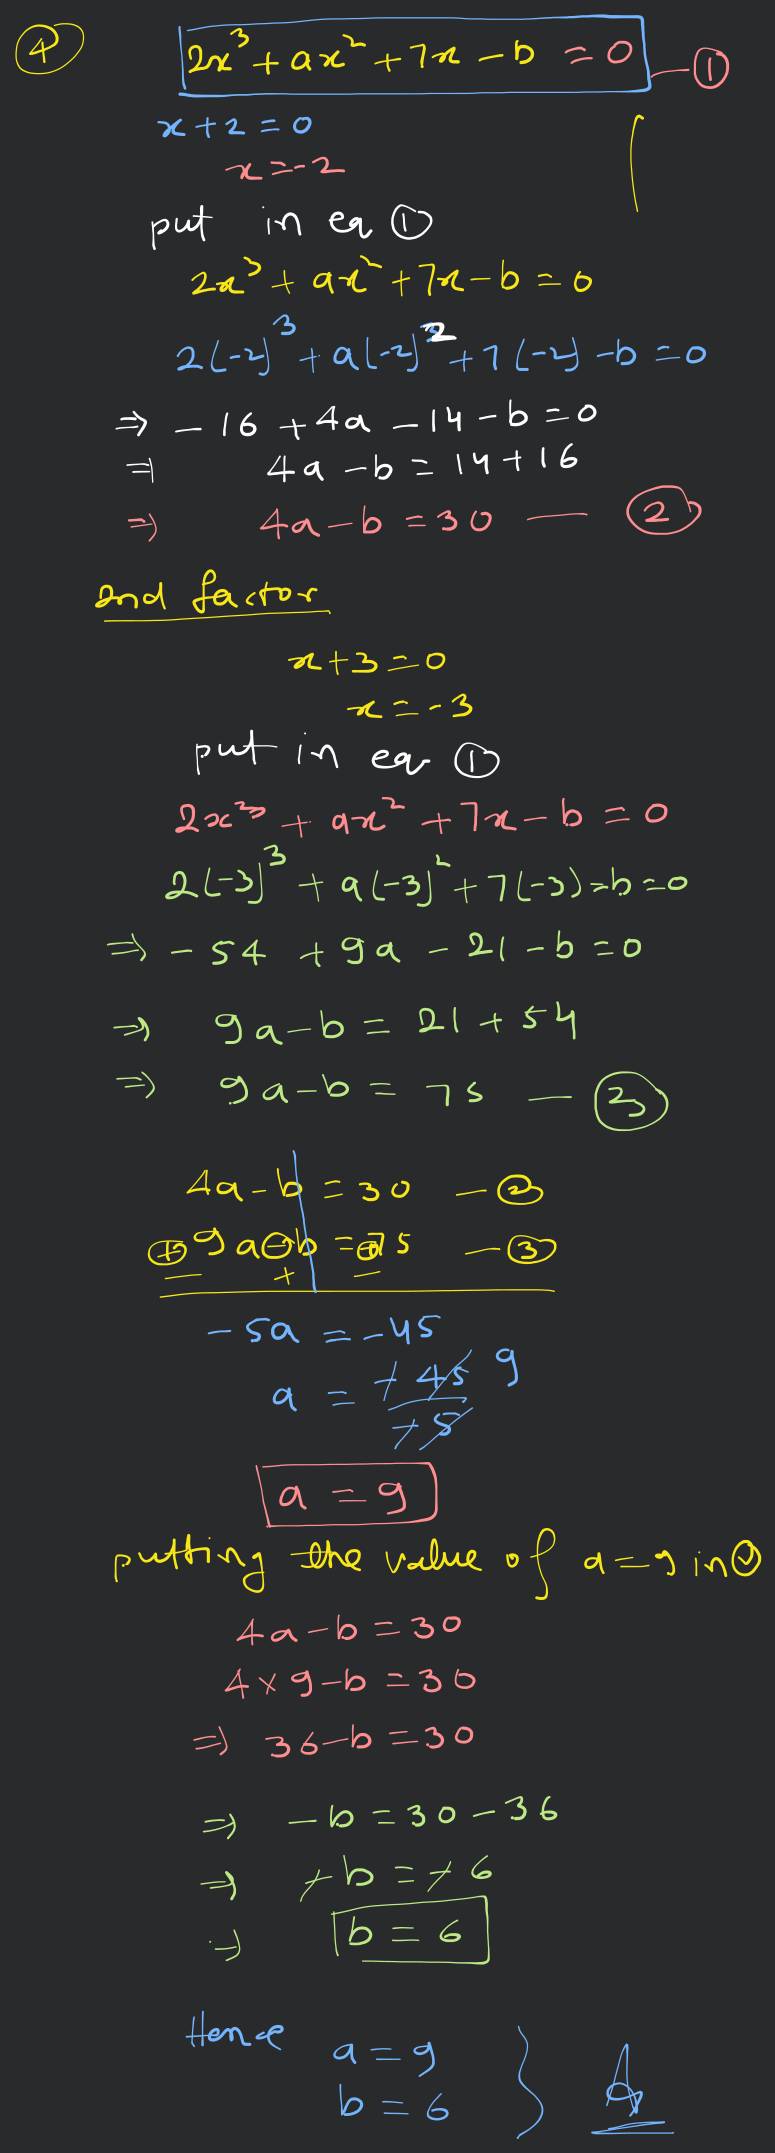 ④ 2x³ + ax² + 7x - b = 0 — ①
x + 2 = 0
x = -2
put in eq ①
2x³ + ax² + 7x - b = 0
2(-2)³ + a(-2)² + 7(-2) - b = 0
⇒ - 16 + 4a - 14 - b = 0
⇒ 4a - b = 14 + 16
⇒ 4a - b = 30 — ②
2nd factor
x + 3 = 0
x = -3
put in eq ①
2x³ + ax² + 7x - b = 0
2(-3)³ + a(-3)² + 7(-3) - b = 0
⇒ - 54 + 9a - 21 - b = 0
⇒ 9a - b = 21 + 54
⇒ 9a - b = 75 — ③
4a - b = 30 — ②
⊕ 9a ⊖ b = ⊕ 75 — ③
- + -
- 5a = - 45
a = - 45 / - 5 9
a = 9
putting the value of a = 9 in ②
4a - b = 30
4 × 9 - b = 30
⇒ 36 - b = 30
⇒ - b = 30 - 36
⇒ - b = - 6
⇒ b = 6
Hence a = 9
b = 6 }